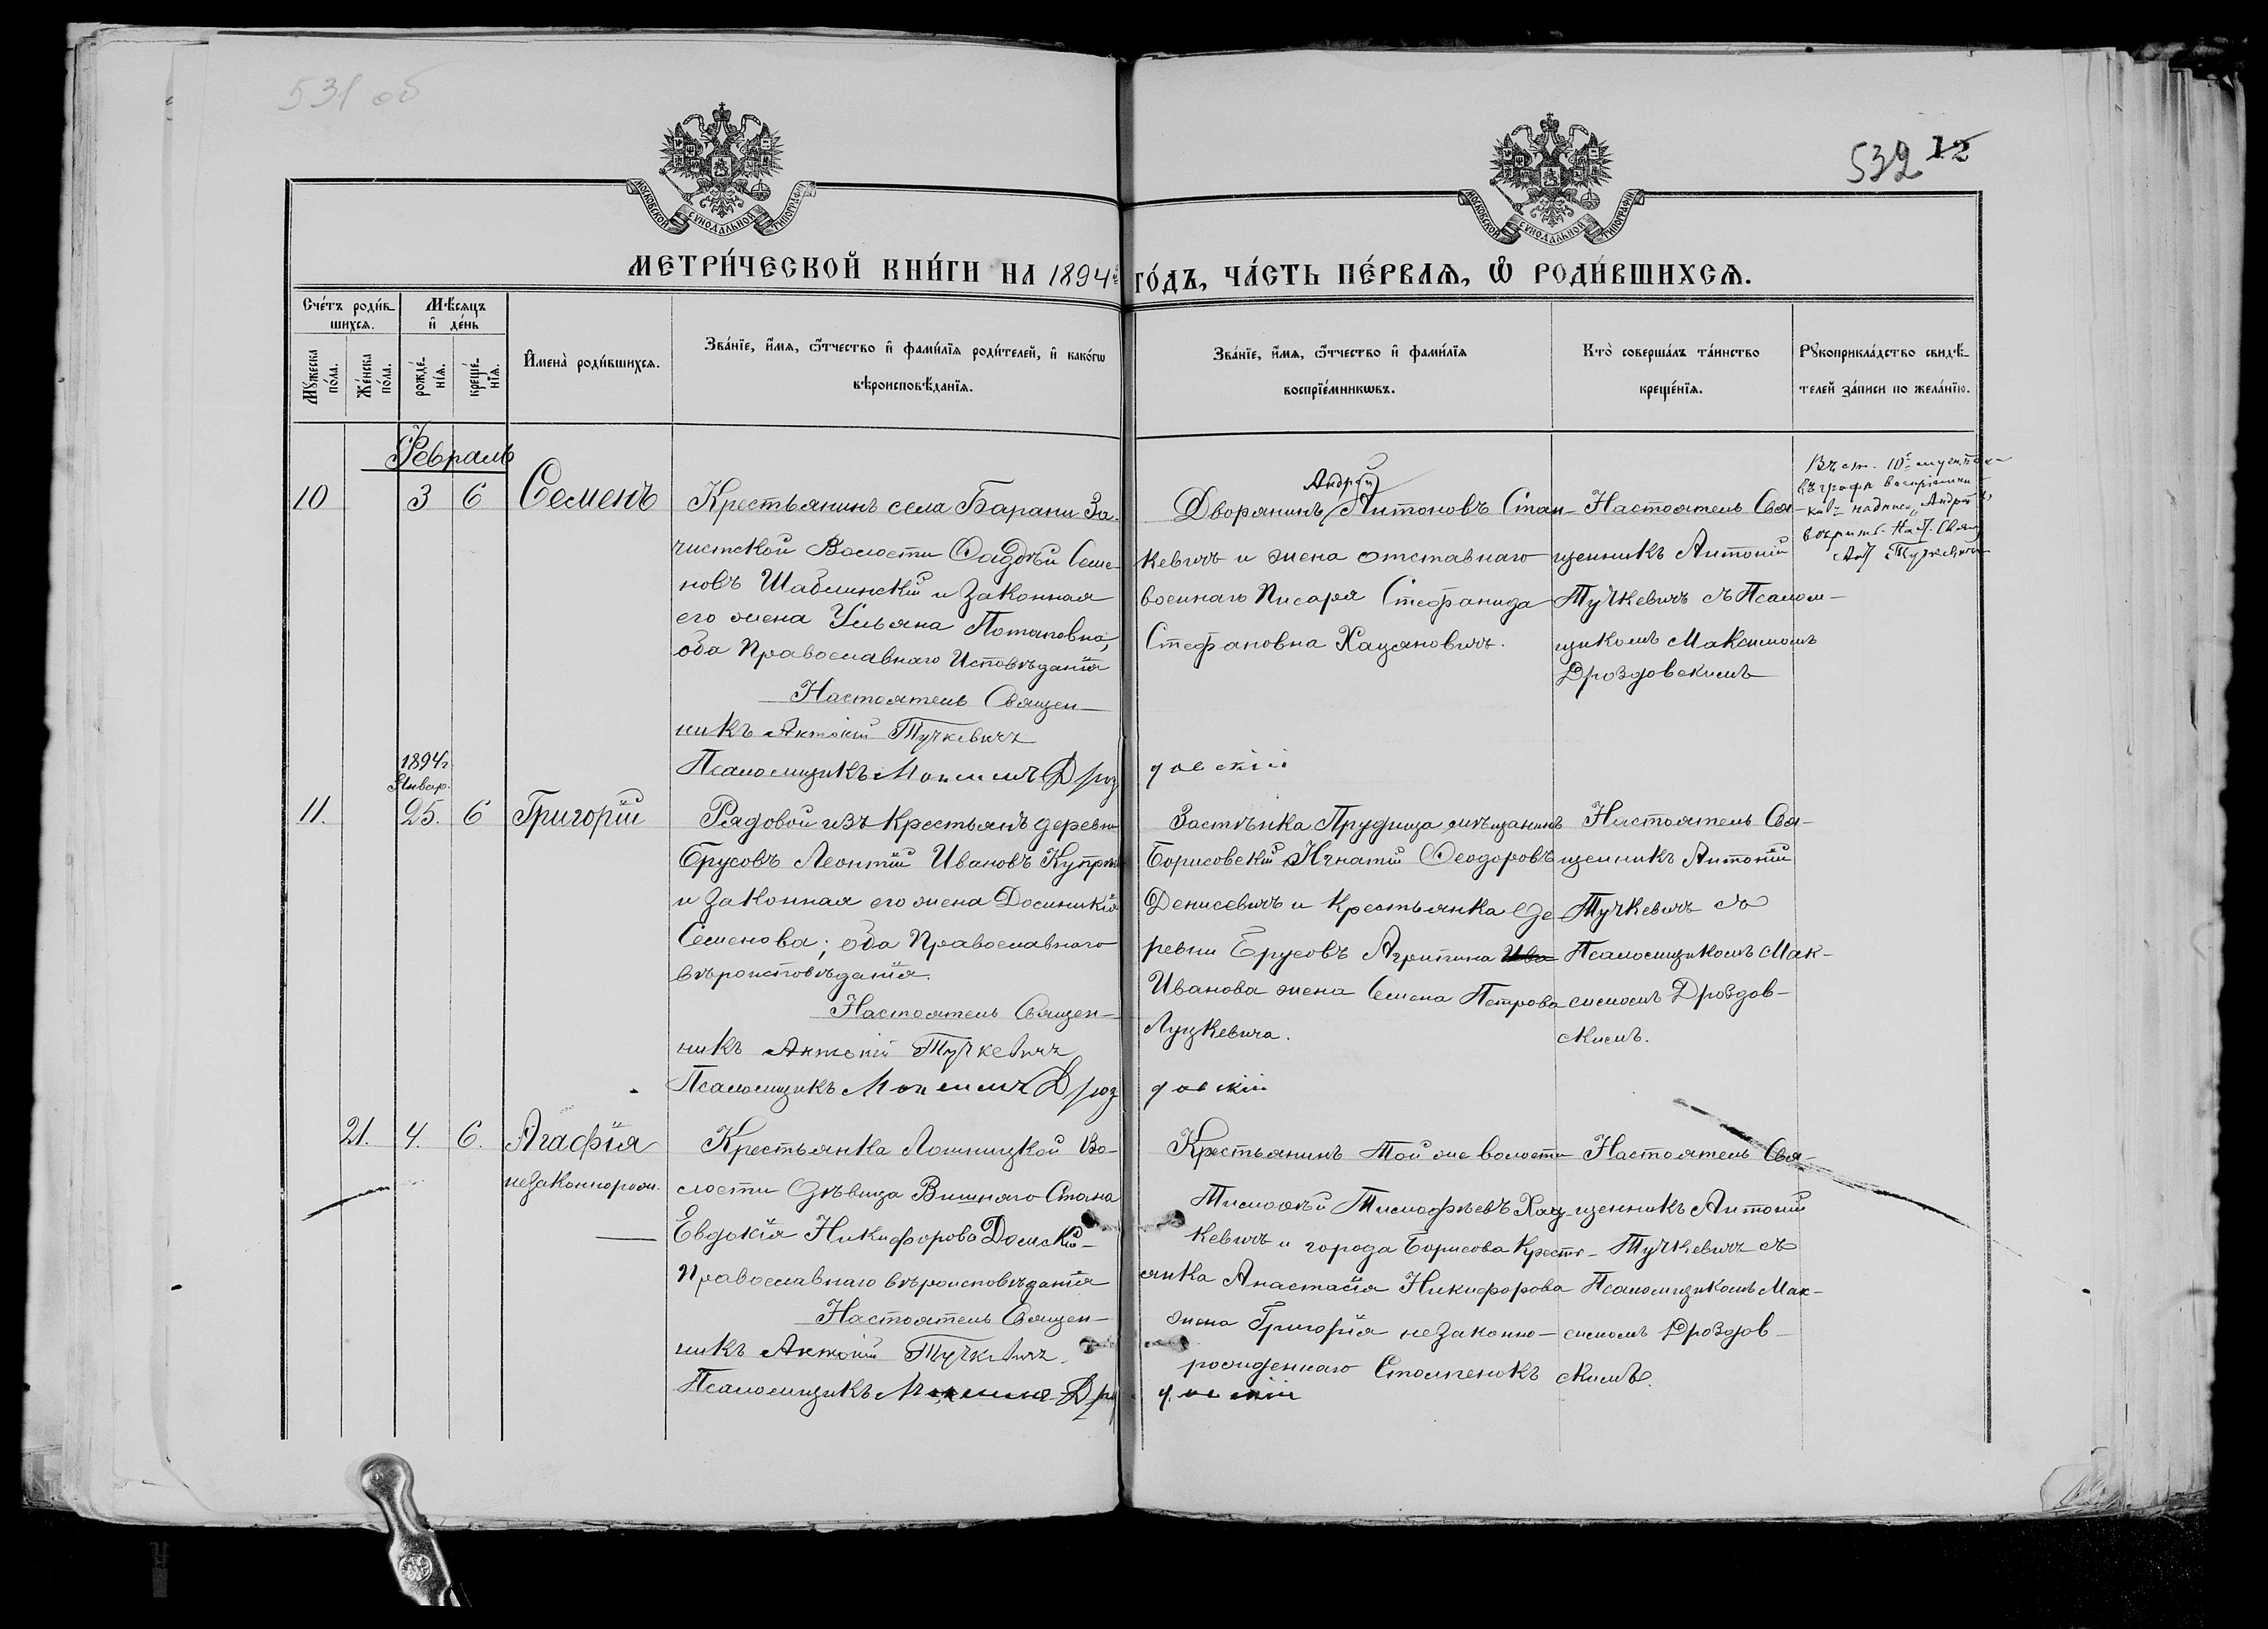 531 об
532 12
МОСКОВСКОЙ СѴНОДАЛЬНОЙ ТИПОГРАФІИ
МОСКОВСКОЙ СѴНОДАЛЬНОЙ ТИПОГРАФІИ
МЕТРИ́ЧЕСКОЙ КНИ́ГИ НА 1894й ГО́ДЪ, ЧА́СТЬ ПЕ́РВАѦ, Ѿ РОДИ́ВШИХСѦ.
Сче́тъ роди́вшихсѧ.
Мѣ́сѧцъ и҆ де́нь
Мꙋ́жеска по́ла.
Же́нска по́ла.
рожде́нїѧ.
креще́нїѧ.
И҆мена̀ роди́вшихсѧ.
Зва́нїе, и҆́мѧ, ѻ҆́тчество и҆ фами́лїѧ роди́телей, и҆ како́гѡ
вѣроисповѣ́данїѧ.
Зва́нїе, и҆́мѧ, ѻ҆́тчество и҆ фами́лїѧ
воспрїе́мникѡвъ.
Кто̀ соверша́лъ та́инство
креще́нїѧ.
Рꙋкоприкла́дство свидѣ́-
телей за́писи по жела́нїю.
Февраль
10 3 6 Семенъ
Крестьянинъ села Барани За-
чистской Волости Фадѣй Семе-
новъ Шаблинскій и законная
его жена Ульяна Потаповна,
оба Православнаго Исповѣданія
Настоятель Священ-
никъ Антоній Тучкевичъ
Псаломщикъ Максимъ Дроз
довскій
Андрей
Дворянинъ Антоновъ Стан-
кевичъ и жена отставнаго
военнаго Писаря Стефанида
Стефановна Хацановичъ.
Настоятель Свя-
щенникъ Антоній
Тучкевичъ съ Псалом-
щикомъ Максимомъ
Дроздовскимъ
Въ ст. 10й
въ графѣ воспріемни
ковъ надпись „Андрей"
Наст. Свящ
Ант Тучкевичъ
1894 г.
Январ.
11. 25. 6 Григорій
Рядовой изъ крестьянъ деревни
Брусовъ Леонтій Ивановъ
и законная его жена Досиникія
Семенова; оба Православнаго
вѣроисповѣданія.
Настоятель Священ-
никъ Антоній Тучкевичъ
Псаломщикъ Максимъ Дроз
довскій
Застѣнка Прудища мѣщанинъ
Борисовскій Игнатій Феодоровъ
Денисевичъ и крестьянка де-
ревни Брусовъ Агрипина Ива
Иванова жена Семена Петрова
Луцкевича.
Настоятель Свя-
щенникъ Антоній
Тучкевичъ съ
Псаломщикомъ Мак-
симомъ Дроздов-
скимъ.
21. 4. 6. Агафія
незаконнорож.
Крестьянка Лошницкой Во-
лости дѣвица Вишняго Стана
Евдокія Никифорова
Православнаго вѣроисповѣданія
Настоятель Священ-
никъ Антоній Тучкевичъ.
Псаломщикъ Максимъ Дроз
довскій
Крестьянинъ той же волости
Тимофѣй Тимофѣевъ Хац-
кевичъ и города Борисова Кресть-
янка Анастасія Никифорова
жена Григорія незаконно-
рожденнаго Столпенокъ
Настоятель Свя-
щенникъ Антоній
Тучкевичъ съ
Псаломщикомъ Мак-
симомъ Дроздов-
скимъ.